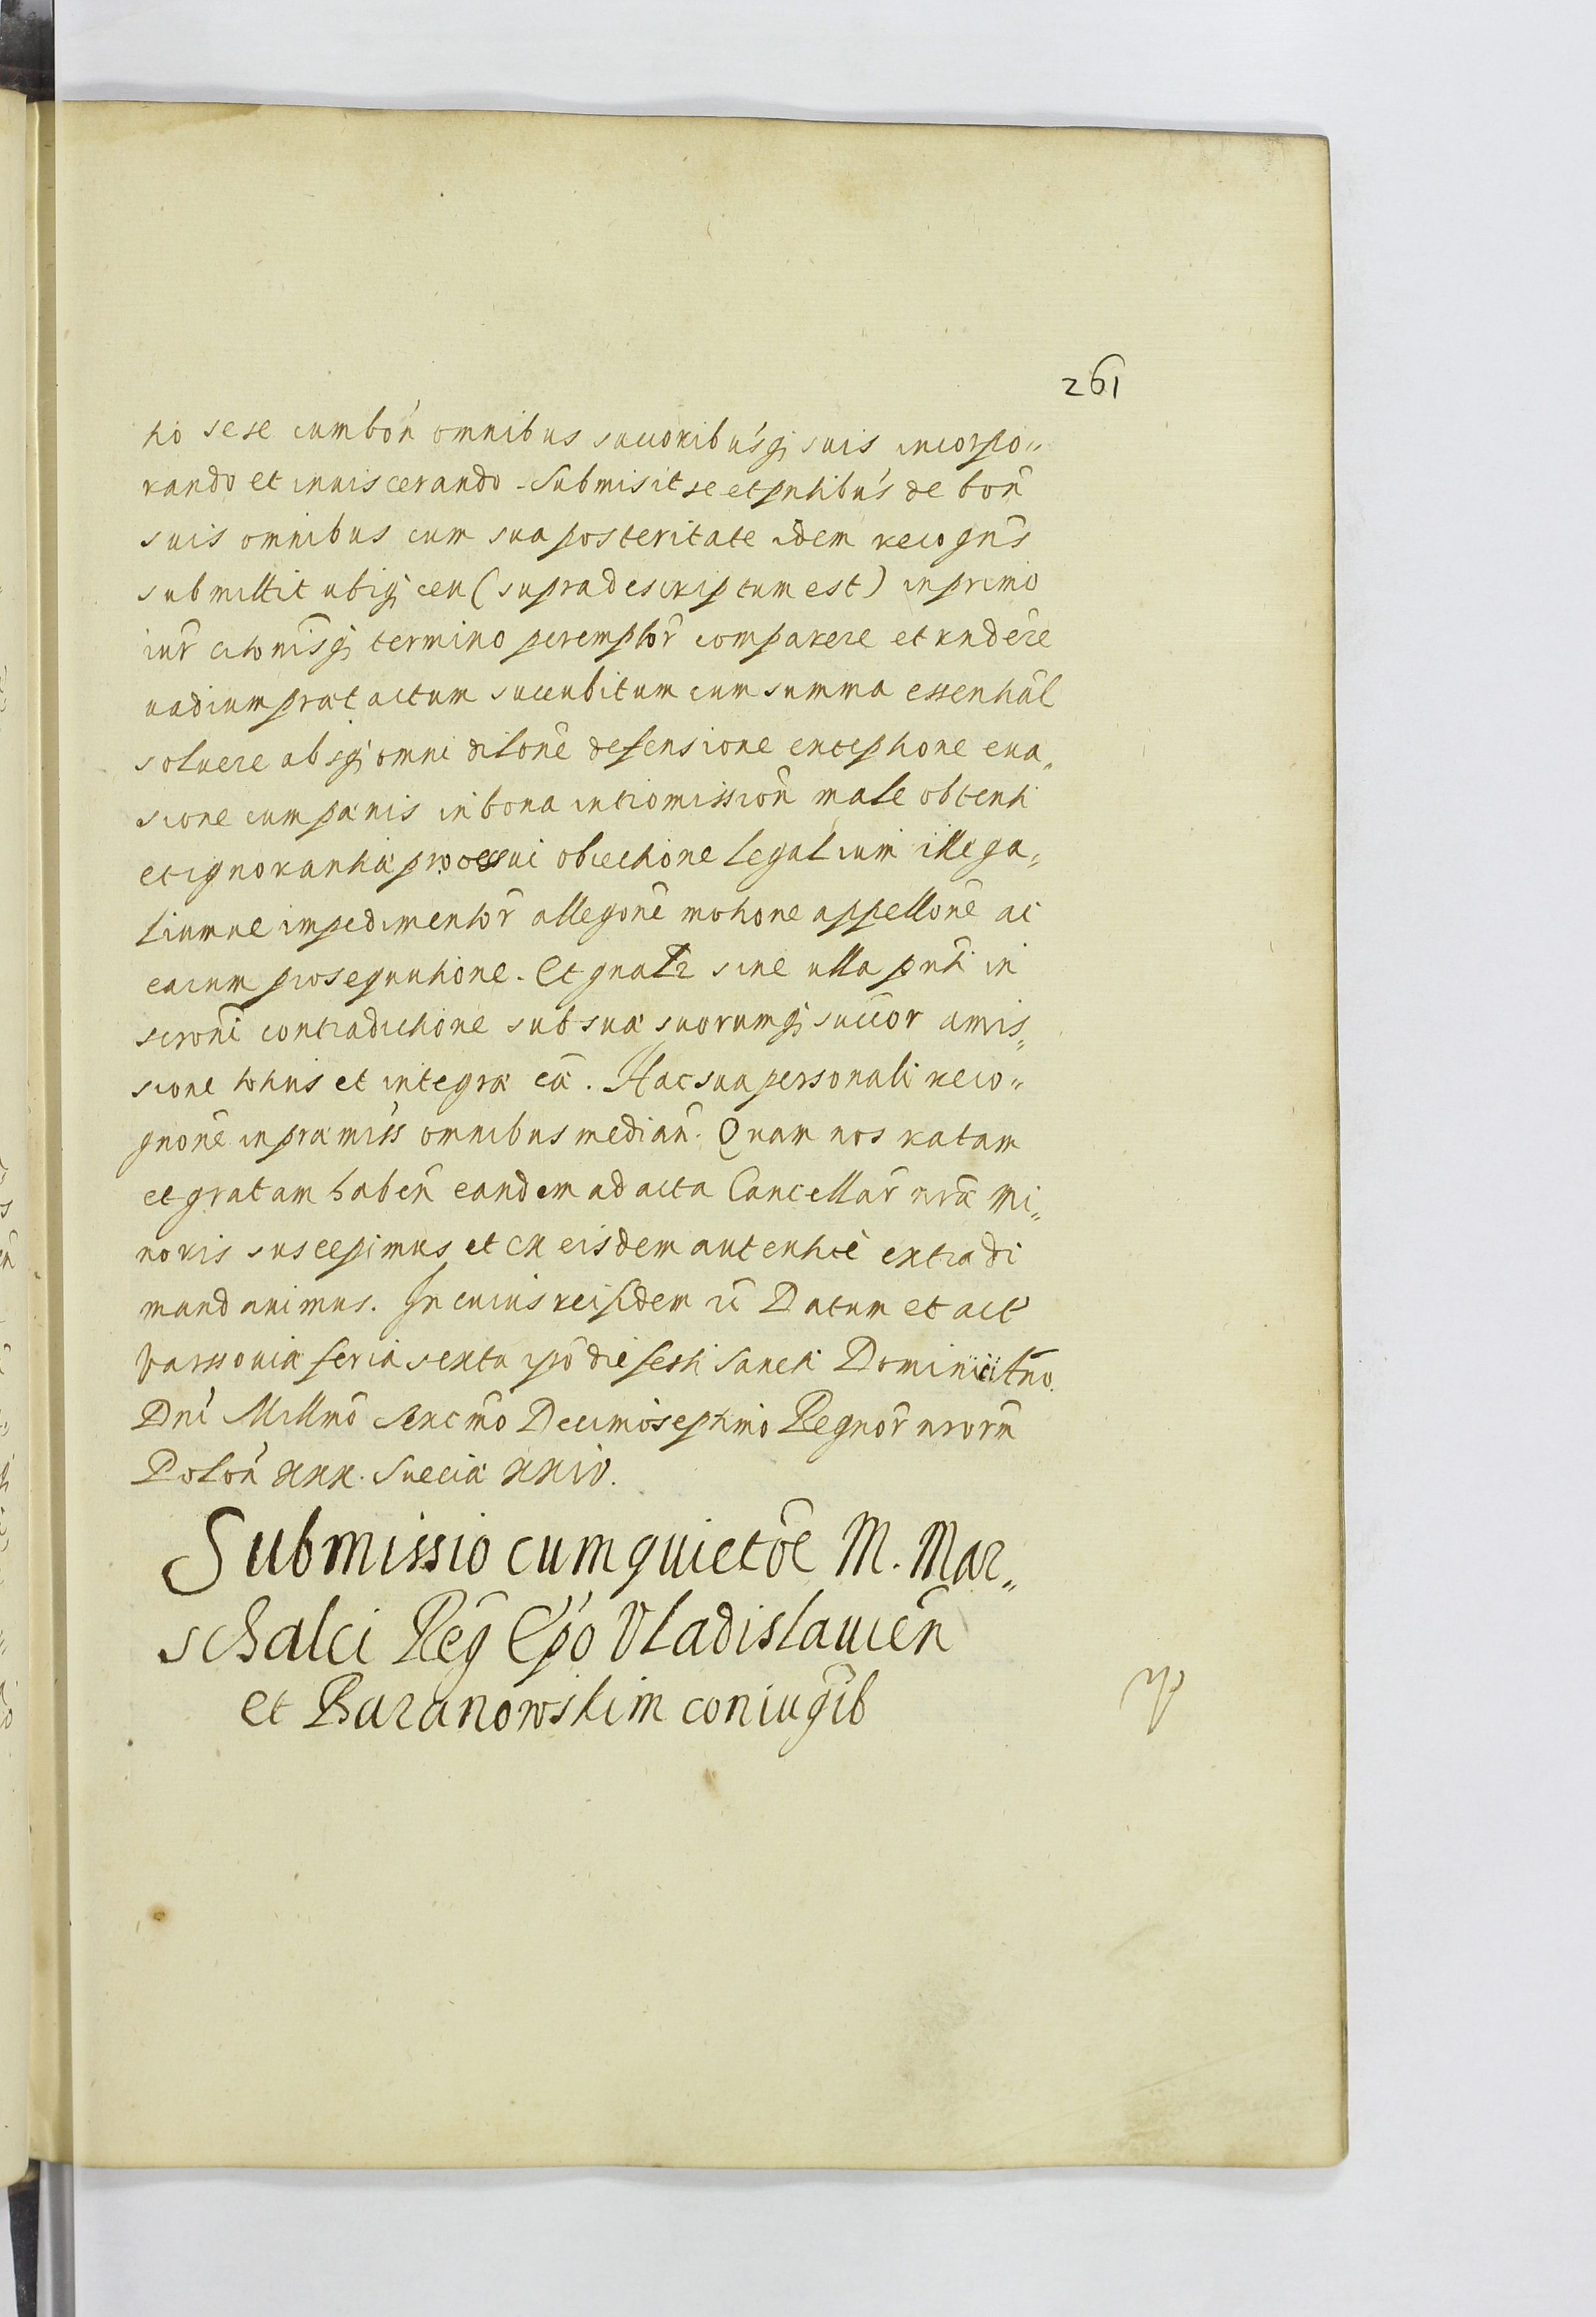 261
tio sese cum bon̄ omnibus succoribusq; suis incorpo„
rando et inuiscerando. Submisit se et pn̄tibus de bon̄
suis omnibus cum sua posteritate idem recogn̄s
submittit ubiq; ceu (supra descriptum est) in primo
iur̄ citōnisq; termino peremptor̄ comparere et rn̄dere
uadium prætactum succubitum cum summa essentiāl
soluere absq; omni dilōne defensione exceptione eua„
sione cum pænis in bona intromission̄ male obtenti
et ignorantiæ processui obiectione legalium illega„
liumue impedimentor̄ allegōne motione appellōne ac
earum prosequutione. Et gnālr sine ulla pn̄ti in
scrōni contradictione sub sua suorumq; succor amis„
sione totius et integræ cā. Hac sua personali reco„
gnōne in præmiss omnibus median̄. Quam nos ratam
et gratam haben̄ eandem ad acta Cancellar̄ nr̄æ Mi„
noris suscepimus et ex eisdem autentice extradi
mandauimus. In cuius rei fidem &c Datum et act̄
Varssouiæ feria sexta ipō die festi Sancti Dominici Ano.
Dn̄i Millmō Sexcmō Decimoseptimo Regnor̄ nr̄orū
Polon̄ xxx. Sueciæ xxiv.
Submissio cum quietōe M. Mar„
schalci Reḡ Epō Vladislauien̄
et Baranowskim coniugib̄